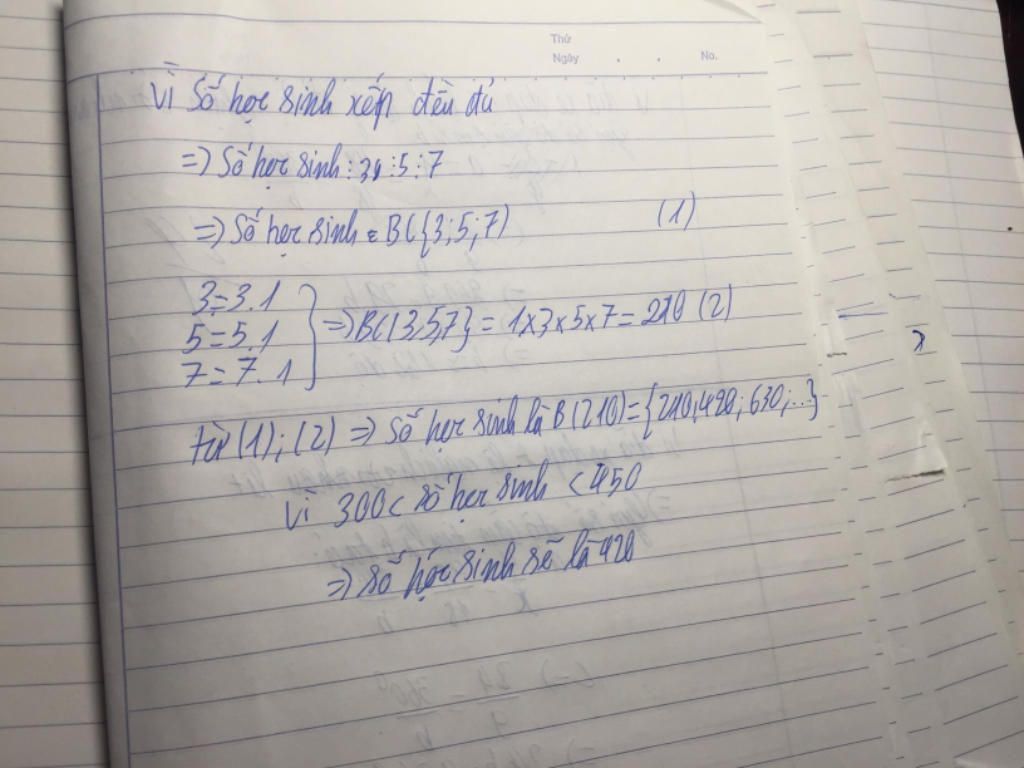 Thứ
Ngày . . No.
Vì Số học sinh xếp đều đủ
=> Số học sinh ⋮ 30 ⋮ 5 ⋮ 7
=> Số học sinh ∈ BC{3;5;7) (1)
3=3.1
5=5.1
7=7.1
=> BC{3,5,7} = 1x3x5x7=210 (2)
từ (1); (2) => Số học sinh là B(210)={210;420;630;...}
Vì 300< số học sinh <450
=> số học sinh sẽ là 420